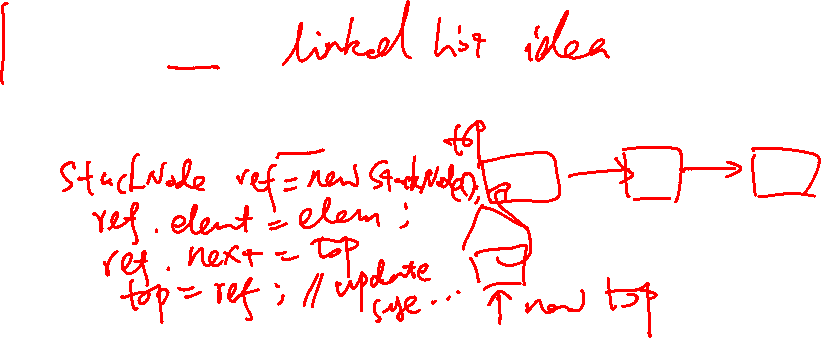 linked list idea
top
StackNode ref = new StackNode();
ref. elemt = elem ;
ref. next = top
top = ref ; // update
size ...
new top